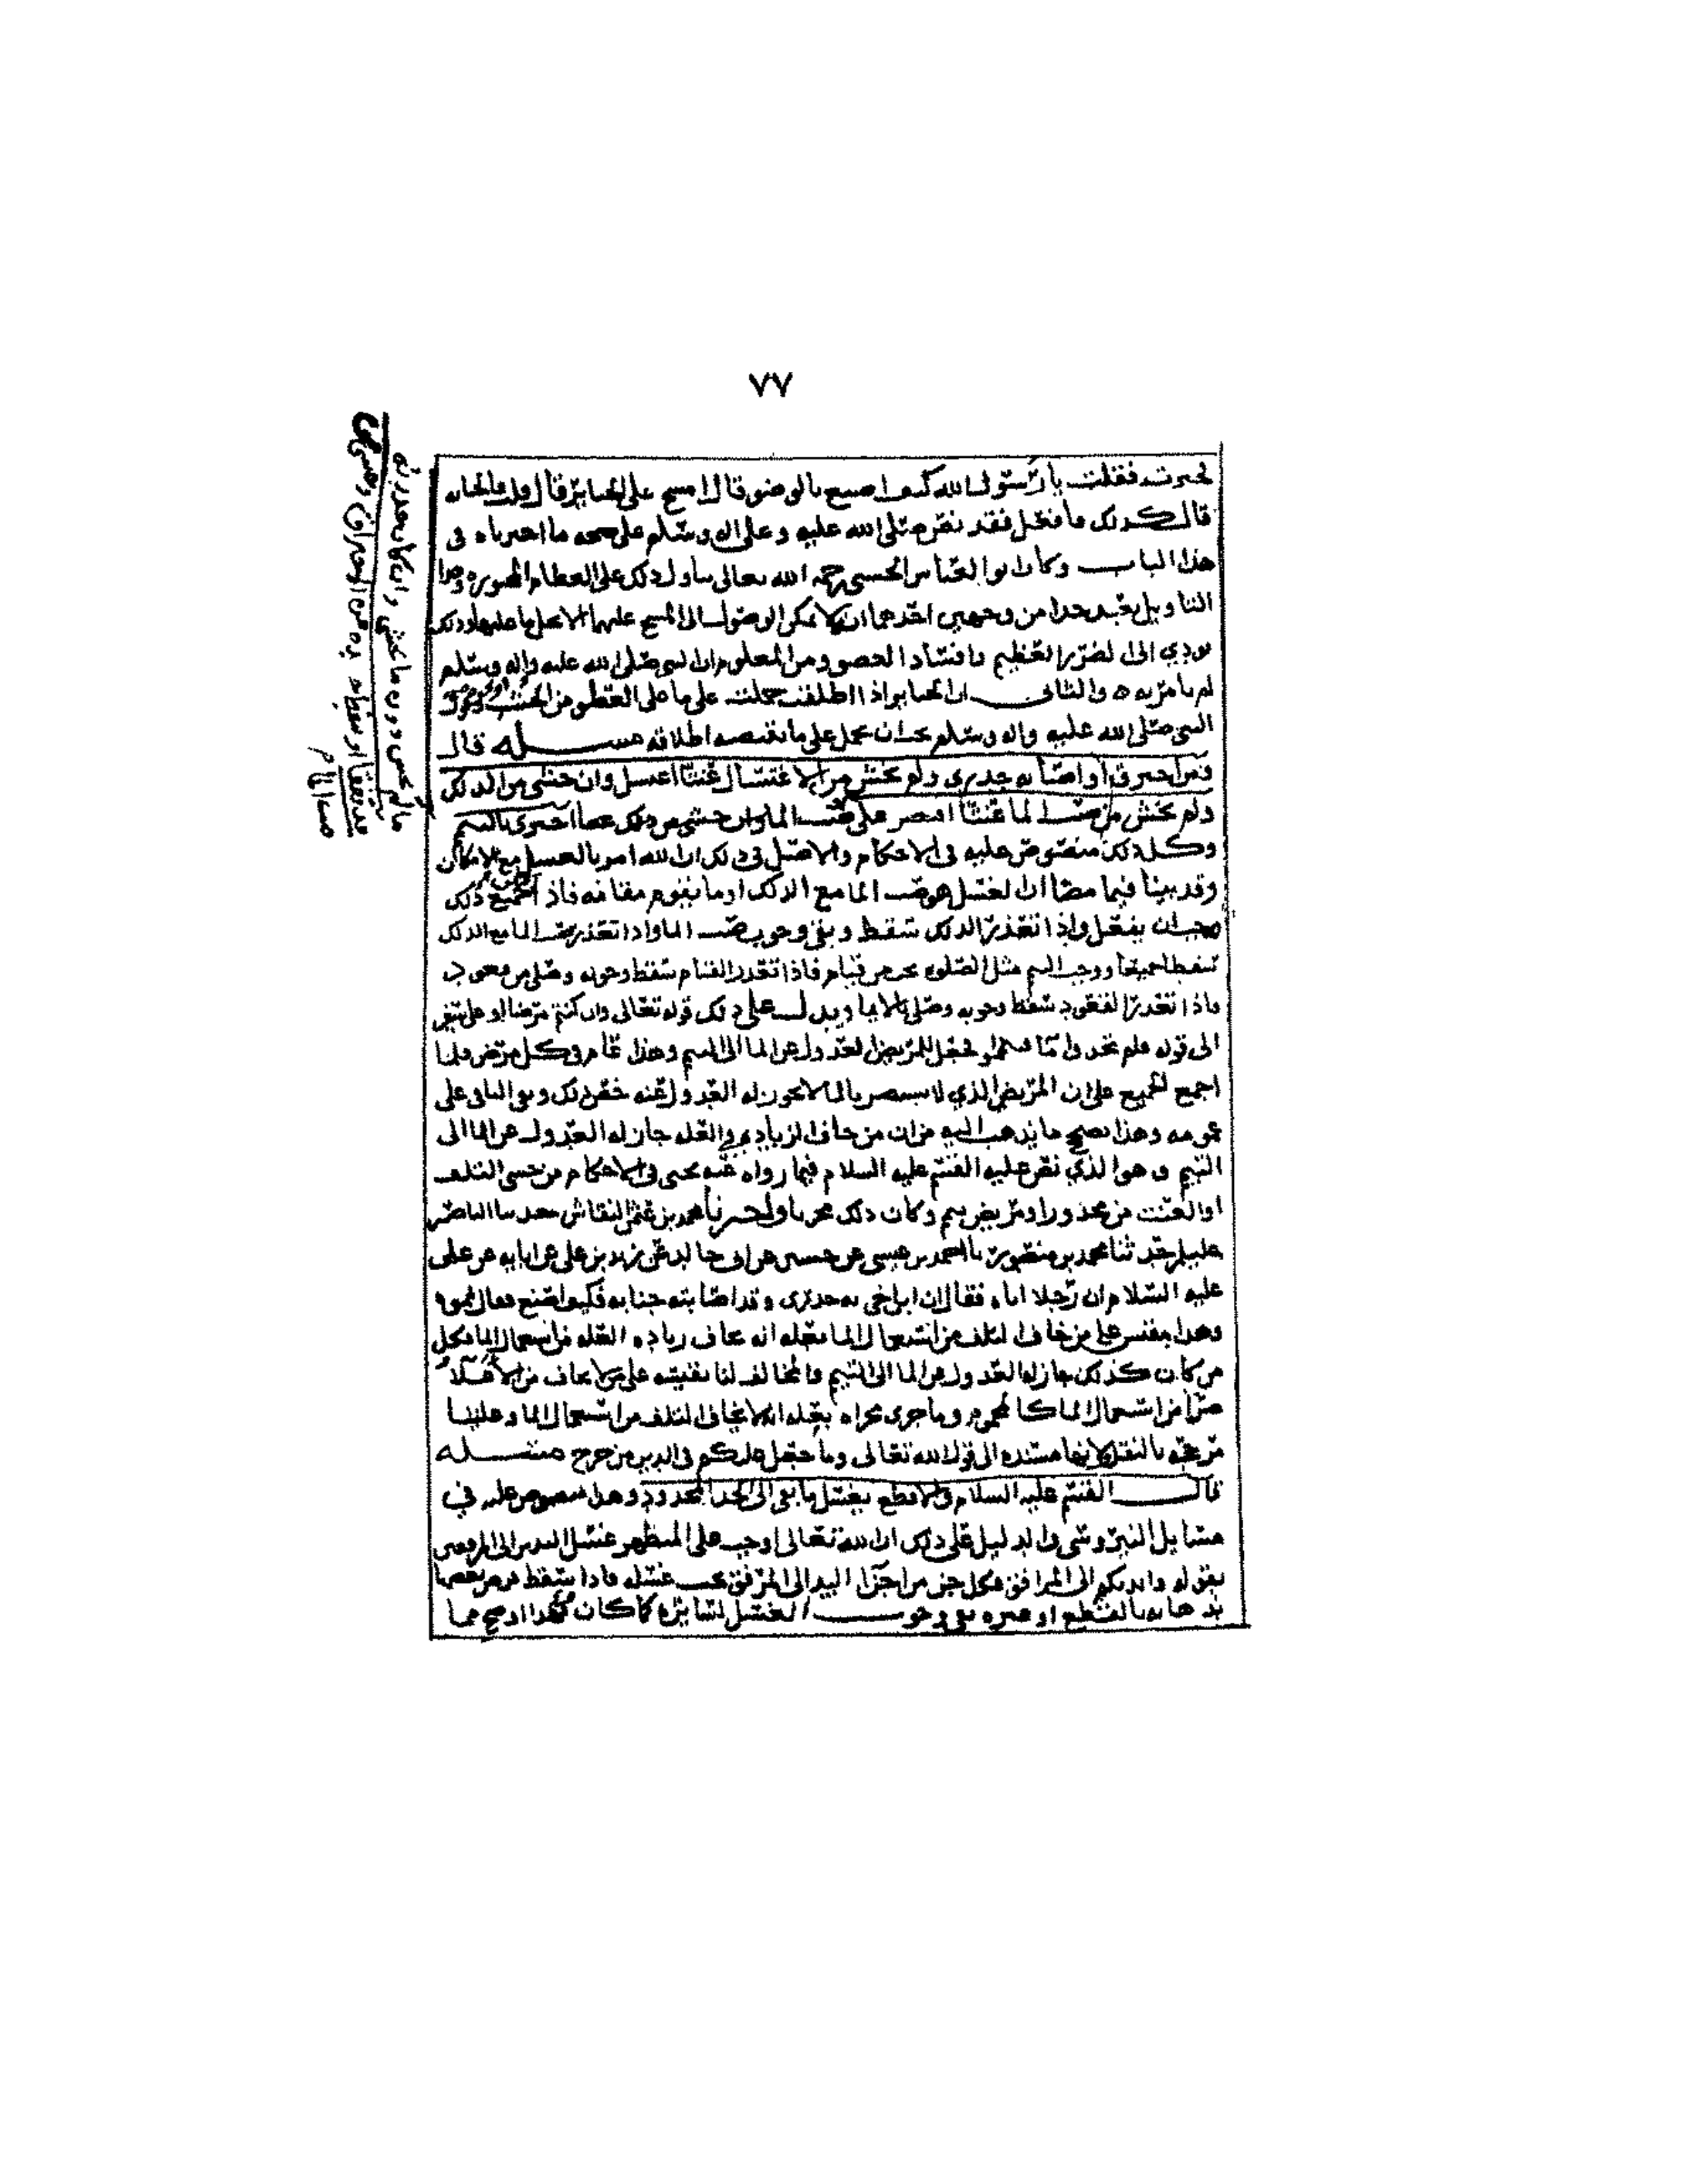 ٧٧
فجبرت فقلت يا رسول الله كيف اصنع بالوضو قال امسح على الجبائر قال قلت فالجنابه
قال كذلك فافعل فقد نص صلى الله عليه وعلى اله وسلم على صحه ما اخبرناه في
هذا الباب وكان ابو العباس الحسني رحمه الله تعالى يتأول ذلك على العظام المجبوره وهذا
التاويل يبعد جدا من وجهين احدهما انه لا يمكن الوصول الى المسح عليها الا بحل ما عليها وذلك
يودي الى الضرر العظيم وافساد العضو ومن المعلوم ان النبي صلى الله عليه واله وسلم
لم يامر به والثاني ان الجبائر اذا اطلقت حملت على ما على العظم من الخشب وقول
النبي صلى الله عليه واله وسلم يجب ان يحمل على ما يقتضيه اطلاقه مسله قال
ومن احترق او اصابه جدري ولم يخش من الاغتسال عنتا اغتسل وان خشي من الدلك
ولم يخش من صب الما عنتا اقتصر على صب الما وان خشي من ذلك ايضا اجتزى بالتيمم
وكل ذلك منصوص عليه في الاحكام والاصل في ذلك ان الله امر بالغسل مع الامكان
وقد بينا فيما مضا ان الغسل هو صب الما مع الدلك او ما يقوم مقامه فاذا امكن جميع ذلك
وجب ان يفعل واذا تعذر الدلك سقط وبقي وجوب صب الما واذا تعذر صب الما مع الدلك
سقطا جميعا ووجب التيمم مثل الصلوه تجب من قيام فاذا تعذر القيام سقط وجوبه وصلى من قعود
واذا تعذر القعود سقط وجوبه وصلى بالايما ويدل على ذلك قوله تعالى وان كنتم مرضى او على سفر
الى قوله فلم تجدوا ما فتيمموا فجعل للمريض العدول عن الما الى التيمم وهذا عام في كل مرض فلما
اجمع الجميع على ان المريض الذي لا يستضر بالما لا يجوز له العدول عنه خص ذلك وبقي الباقي على
عمومه وهذا يصحح ما يذهب اليه من ان من خاف الزياده في العله جاز له العدول عن الما الى
التيمم وهو الذي نص عليه القسم عليه السلام فيما رواه عنه يحيى في الاحكام من خشي التلف
او العنت من مجدور او مريض تيمم وكان ذلك مجزيا واخبرنا محمد بن عثمن النقاش حدثنا الناصر
عليلم حدثنا محمد بن منصور نا احمد بن عيسى عن حسين عن ابي خالد عن زيد بن علي عن ابايه عن علي
عليه السلام ان رجلا اتاه فقال ان ابن اخي به جدري وقد اصابته جنابه فكيف اصنع فقال يمموه
وهذا يقيس على من خاف التلف من استعمال الما بعله انه يخاف زياده العله من استعمال الما فكل
من كان كذلك جاز له العدول عن الما الى التيمم والمخالف لنا يقيسه على من لا يخاف من الاعلاء
ضرا من استعمال الما كالمحموم وما جرى مجراه بعله انه لا يخاف التلف من استعمال الما وعلتنا
مرجحه بالنقل لانها مستنده الى قول الله تعالى وما جعل عليكم في الدين من حرج مسله
قال القسم عليه السلام في الاقطع يغسل ما بقي الى الحد المحدود وهذا منصوص عليه في
مسايل النيروسي والدليل على ذلك ان الله تعالى اوجب على المتطهر غسل اليدين الى المرفقين
بقوله وايديكم الى المرافق فكل جز من اجزا اليد الى المرفق يجب غسله فاذا سقط فرض بعضها
بذهابه بالقطع او غيره بقي وجوب الغسل لسايره كما كان